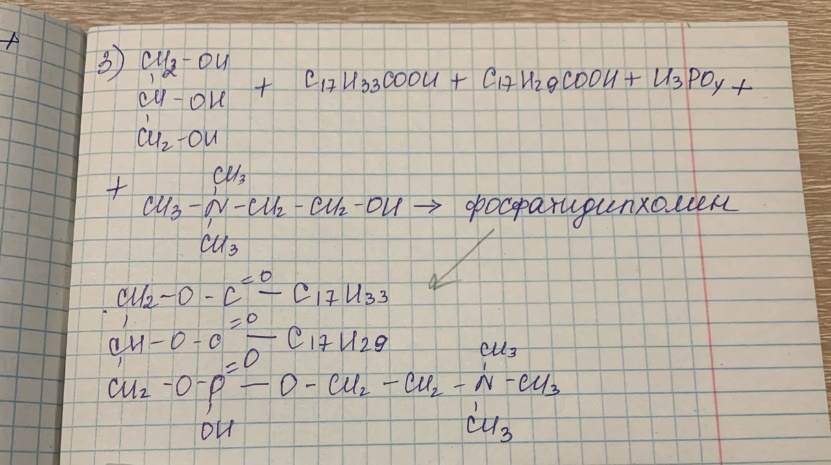 3) CH2-OH
CH-OH + C17H33COOH + C17H29COOH + H3PO4 +
CH2-OH
CH3
+ CH3-N-CH2-CH2-OH → фосфатидилхолин
CH3
CH2-O-C=O-C17H33
CH-O-C=O-C17H29
CH3
CH2-O-P=O-O-CH2-CH2-N-CH3
OH CH3